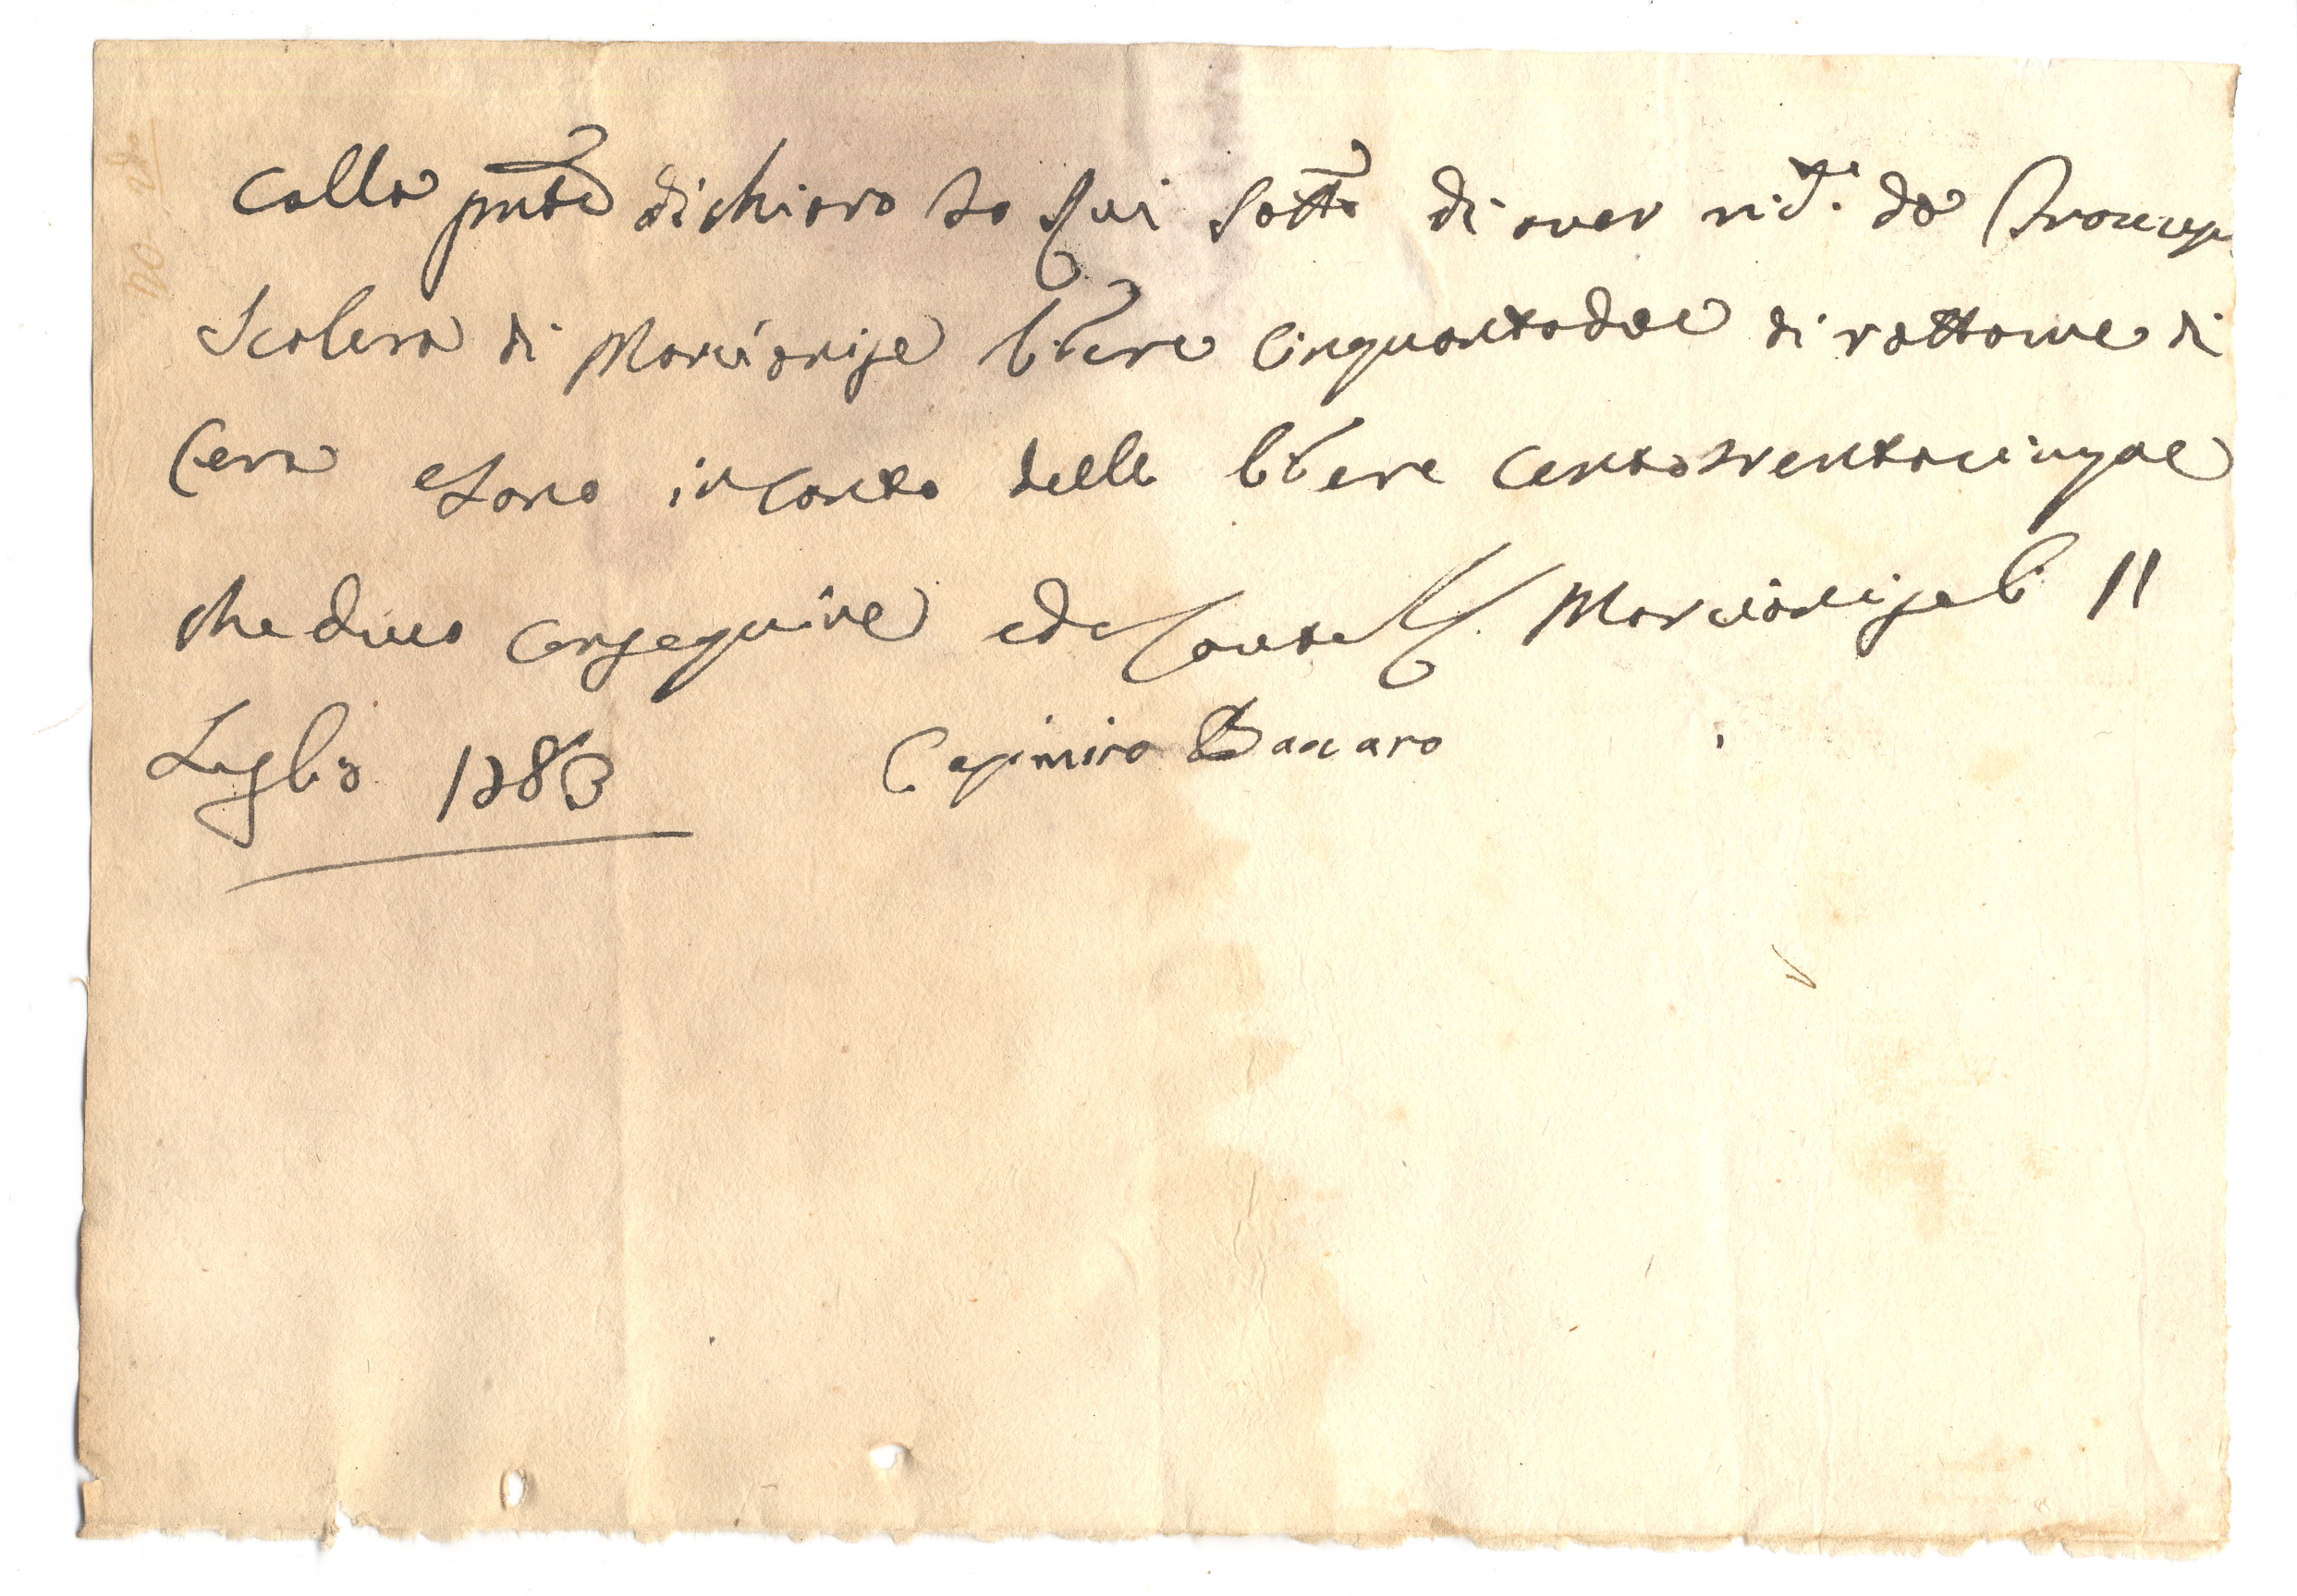 Colla pnte dichiaro Io qui sotto di aver ric.to da
Scalera di Marcianise libere cinquantadue di rottame di
Cera e sono in conto delle libere centotrentacinque
che devo conseguire ed in Marcianise li 11
Luglio 1783 Casimiro Baccaro